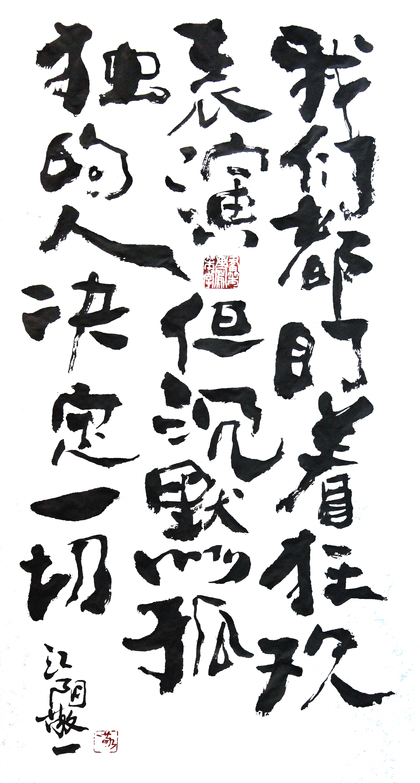 我们都盯着狂欢
表演但沉默而孤
独的人决定一切
江阳一